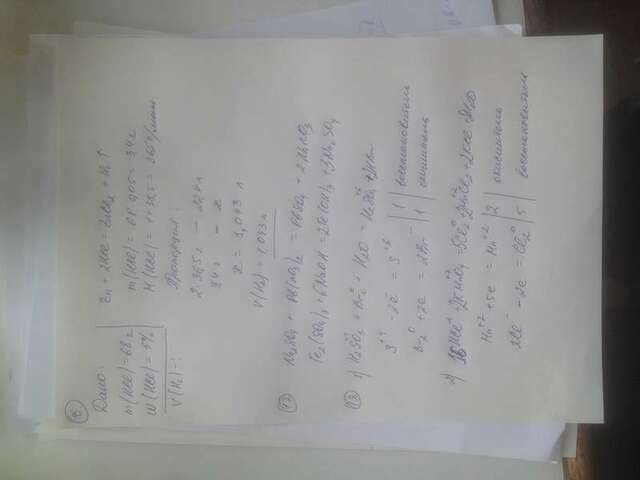 8
Дано:
m(HCl) = 68 г
w(HCl) = 5%
V(H₂) - ?
Zn + 2HCl = ZnCl₂ + H₂↑
m(HCl) = 68·0,05 = 3,4 г
M(HCl) = 1+35,5 = 36,5 г/моль
Пропорция:
2·36,5 г — 22,4 л
3,4 г — x
x = 1,043 л
V(H₂) = 1,043 л
12
Na₂SO₄ + Pb(NO₃)₂ = PbSO₄ + 2NaNO₃
Fe₂(SO₄)₃ + 6NaOH = 2Fe(OH)₃ + 3Na₂SO₄
13 1) H₂SO₃ + Br₂⁰ + H₂O = H₂SO₄ + 2HBr
S⁺⁴ - 2e = S⁺⁶ | 1 | восстановитель
Br₂⁰ + 2e = 2Br⁻ | 1 | окислитель
2) 16HCl⁻¹ + 2KMnO₄ = 5Cl₂⁰ + 2MnCl₂ + 2KCl + 8H₂O
Mn⁺⁷ + 5e = Mn⁺² | 2 | окислитель
2Cl⁻ - 2e = Cl₂⁰ | 5 | восстановитель